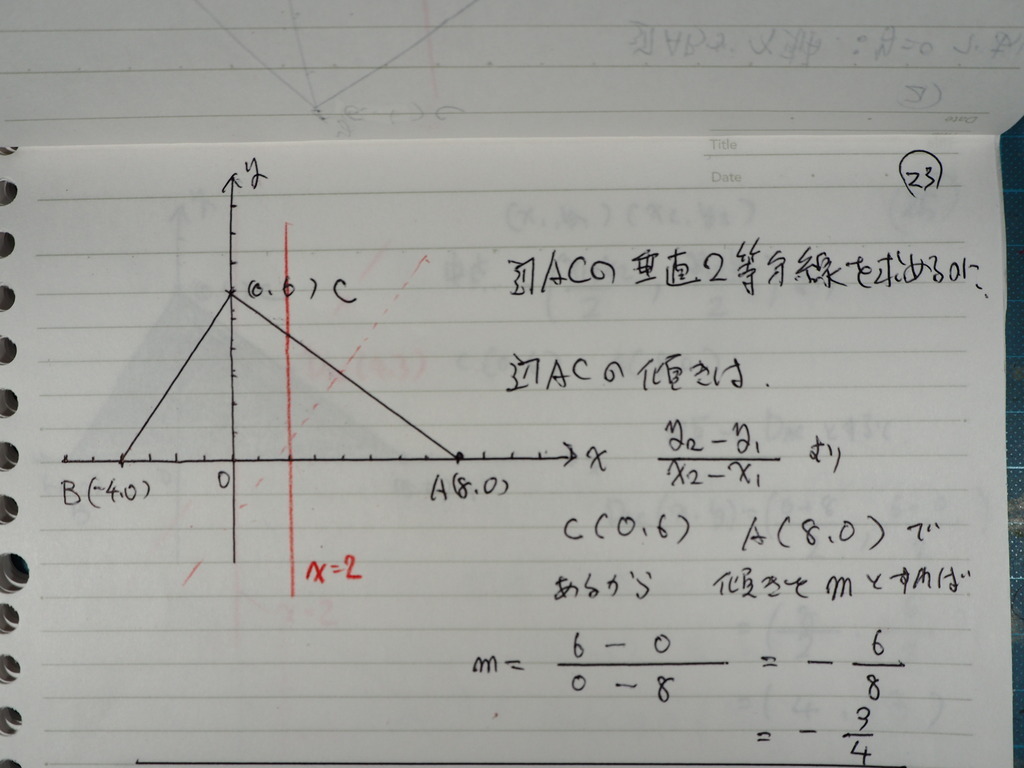 Title
Date
23
y
(0,6) C
辺ACの垂直2等分線を求めるのに、
辺ACの傾きは、
x
y₂-y₁/x₂-x₁ より
B(-4,0)
0
A(8,0)
C(0,6) A(8,0)で
x=2
あるから 傾きを m とすれば
m = 6-0/0-8 = - 6/8
= - 3/4